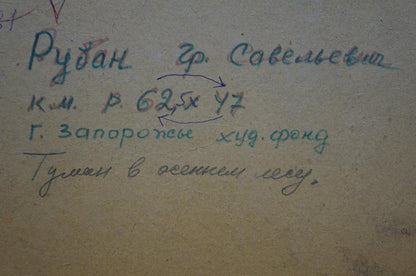 Рубан гр. Савельевич
к.м. р. 62,5х47
г. Запорожье худ. фонд
Туман в осеннем лесу.